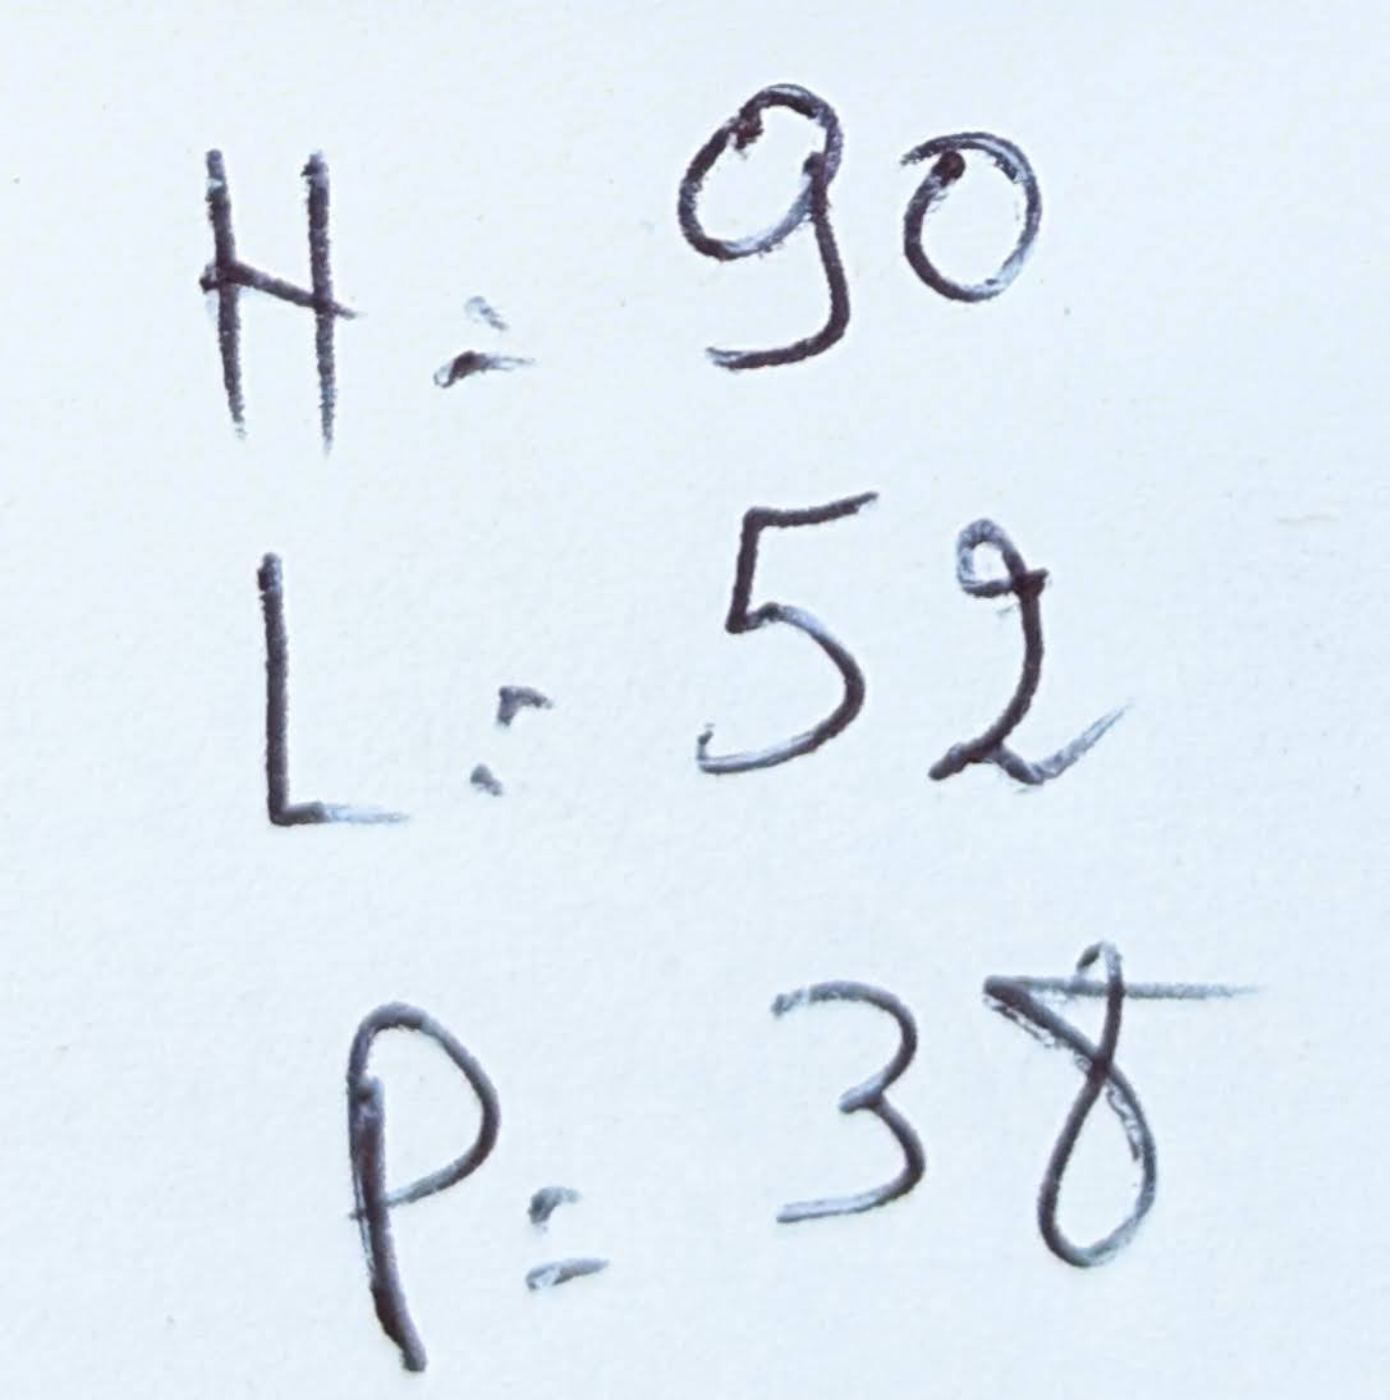 H: 90
L: 52
P: 38